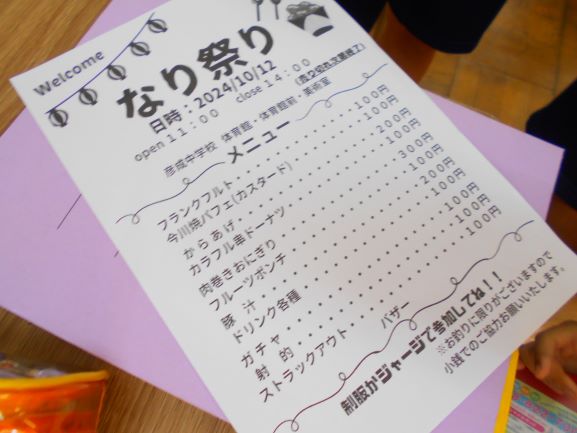 Welcome
なり祭り
日時:2024/10/12
open 11:00 close 14:00 (売り切れ次第終了)
彦成中学校 体育館・体育館前・美術室
メニュー
フランクフルト・・・・・・・・・・・・100円
今川焼パフェ(カスタード)・・・・・・100円
からあげ・・・・・・・・・・・・・・200円
カラフル串ドーナツ・・・・・・・・・100円
肉巻きおにぎり・・・・・・・・・・・300円
フルーツポンチ・・・・・・・・・・・100円
豚 汁・・・・・・・・・・・・・・・200円
ドリンク各種・・・・・・・・・・・・100円
ガチャ・・・・・・・・・・・・・・・100円
射 的・・・・・・・・・・・・・・・100円
ストラックアウト・・・・・・・・・・100円
バザー
制服かジャージで参加してね!!
※お釣りに限りがございますので
小銭でのご協力お願いいたします。